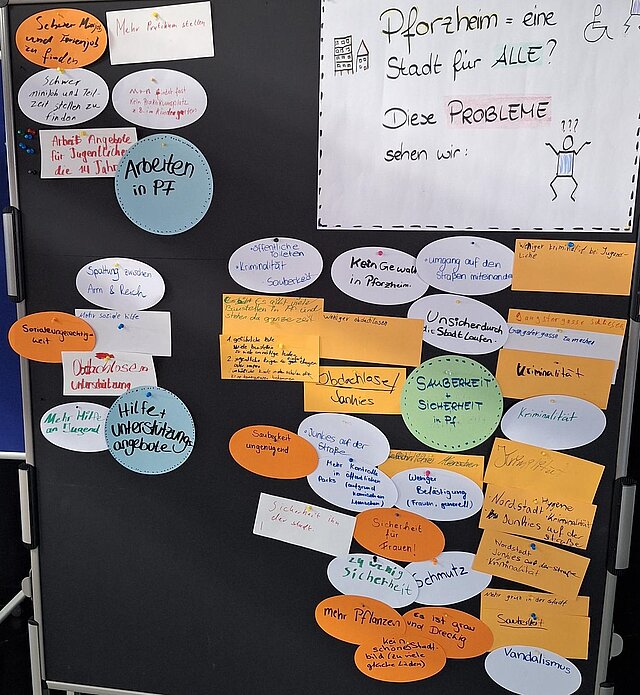 Pforzheim = eine
Stadt für ALLE?
Diese PROBLEME
sehen wir:
???
und Ferienjob
zu finden
Mehr
stellen
Schwer
minijob und Teil-
zeit stellen zu
finden
Arbeit Angebote
für Jugendliche
die 14 Jahre
Arbeiten
in PF
Spaltung zwischen
Arm & Reich
Mehr soziale hilfe
Obdachlose in
Unterstützung
Mehr Hilfe
an Jugend
Hilfe +
unterstützungs-
angebote
• öffentliche
Toileten
• Kriminalität
Sauberkeit
Kein Gewalt
in Pforzheim
• umgang auf den
Straßen miteinander
weniger kriminalität bei Jugend-
liche
Es gibt viele
Baustellen in PF und
stehen da ganze zeit
weniger obdachlosen
Unsicher durch
die Stadt Laufen.
Gangster gasse
Kriminalität
Obdachlose/
Junkies
SAUBERKEIT
+
SICHERHEIT
in PF.
Kriminalität
Saubigkeit
ungenügend
• Junkies auf der
Straße
Mehr Kontrolle
in öffentlichen
Parks (aufgrund
komischen
Menschen)
Menschen
Weniger
Belästigung
(Frauen, generell)
Nordstadt
Hygiene
Kriminalität
Junkies auf der
straße
Sicherheit
der stadt.
Sicherheit
für
Frauen!
Nordstadt
Junkies auf der straße
Kriminalität
zu wenig
Sicherheit
Schmutz
Mehr grün in der stadt
Sauberkeit
mehr Pflanzen
und
es ist grau
Dreckig
kein
schönes Stadt-
bild (zu viele
gleiche Läden)
Vandalismus